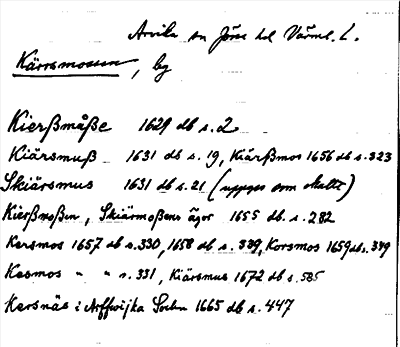 Arvika sn Jösse hd Värml. L.
Kärrsmossen, by
Kierßmåße 1629 db s. 2
Kiärsmuß 1631 db s. 19, Kiärßmos 1656 db s. 323
Skiärsmus 1631 db s. 21 (uppges som skatte)
Kierßmoßen, Skiärmoßens ägor 1655 db. s. 282
Kersmos 1657 db s. 330, 1658 db s. 339, Korsmos 1659 db s. 339
Kesmos " " s. 331, Kiärsmus 1672 db s. 585
Kersnäs i Arffwijka Sochn 1665 db s. 447